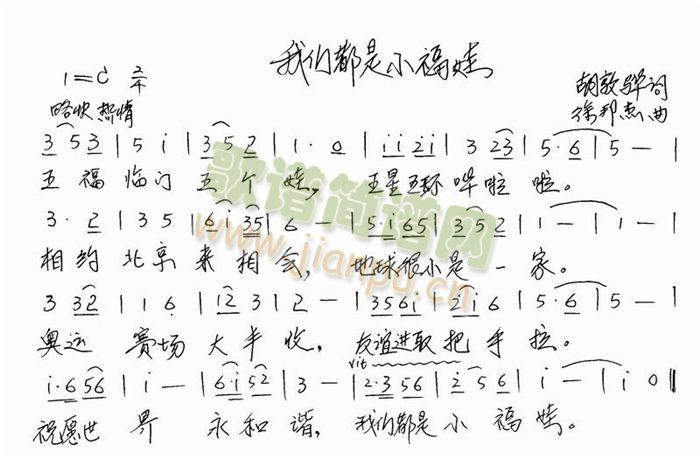 我们都是小福娃
1=C 2/4
胡敦骅词
略快 热情
徐邦杰曲
3 5 3 | 5 i | 3 5 2 | 1· 0 | i i 2 i | 3 2 3 | 5· 6 | 5 — |
五福临门五个娃，五星五环哗啦啦。
3· 2 | 3 5 | 6· i 3 5 | 6 — | 5·1 6 5 | 3 5 2 | 1 — | 1 — |
相约北京来相会，地球很小是一家。
3 3 2 | 1 1 6 | 1 2 3 | 2 — | 3 5 6 i | 2 i 6 | 5· 6 | 5 — |
奥运赛场大丰收，友谊进取把手拉。
rit
i·6 5 6 | i — | 6·i 5 2 | 3 — | 2·3 5 6 | 2 5 6 | i — | i 0 ||
祝愿世界永和谐，我们都是小福娃。
歌谱简谱网
www.jianpu.cn